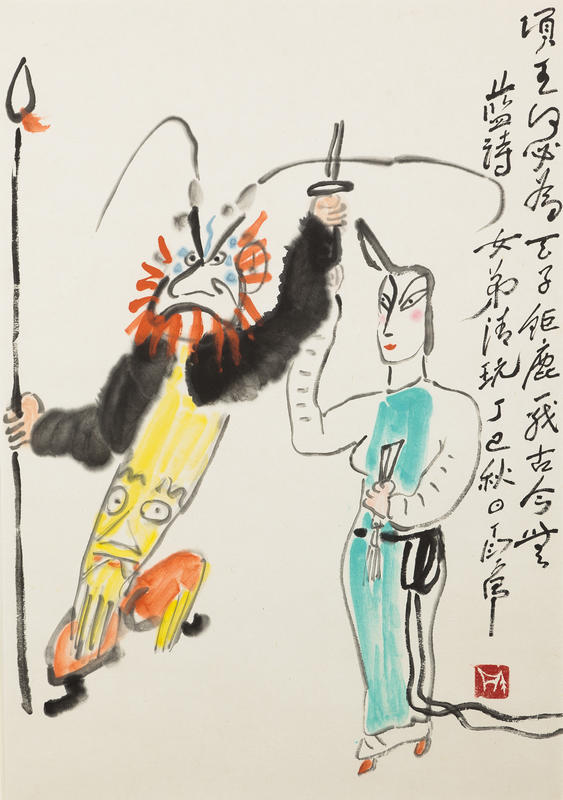 項王何必為天子鉅鹿一戰古今無
藍詩女弟清玩丁巳秋日